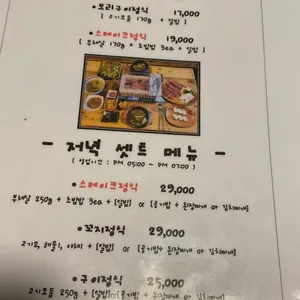 •오리구이정식 17,000
[ 고기모듬 170g + 쌀밥 ]
•스테이크정식 19,000
[ 부채살 170g + 초밥밥 3ea + 쌀밥 ]
- 저녁 셋트 메뉴 -
( 영업시간 : PM 05:00 ~ PM 07:00 )
•스테이크정식 29,000
부채살 250g + 초밥밥 3ea + [쌀밥] or [공기밥 + 된장찌개 or 김치찌개]
•꼬치정식 29,000
고기2, 해물1, 야채1 + [쌀밥] or [공기밥+ 된장찌개 or 김치찌개]
•구이정식 25,000
고기모듬 250g + [쌀밥] or [공기밥 + 된장찌개 or 김치찌개]